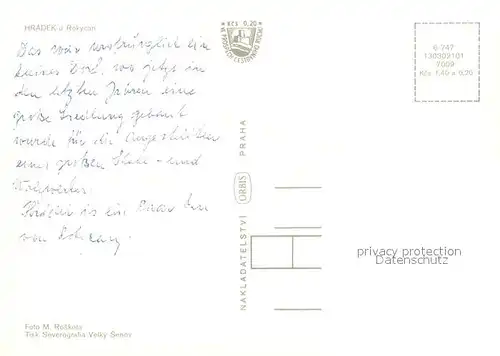 HRÁDEK u Rokycan
Das war ursprünglich ein
kleines Dorf, wo jetzt in
den letzten Jahren eine
große Siedlung gebaut
wurde für die Angestellten
eines großen Stahl- und
Walzwerkes.
Hrádek is ein Paar km
von Rokycany.
Foto M. Roškota
Tisk Severografia Velký Šenov
Kčs 0,20
NAKLADATELSTVÍ ORBIS PRAHA
6-747
130302101
7009
Kčs 1,40 + 0,20
privacy protection
Datenschutz